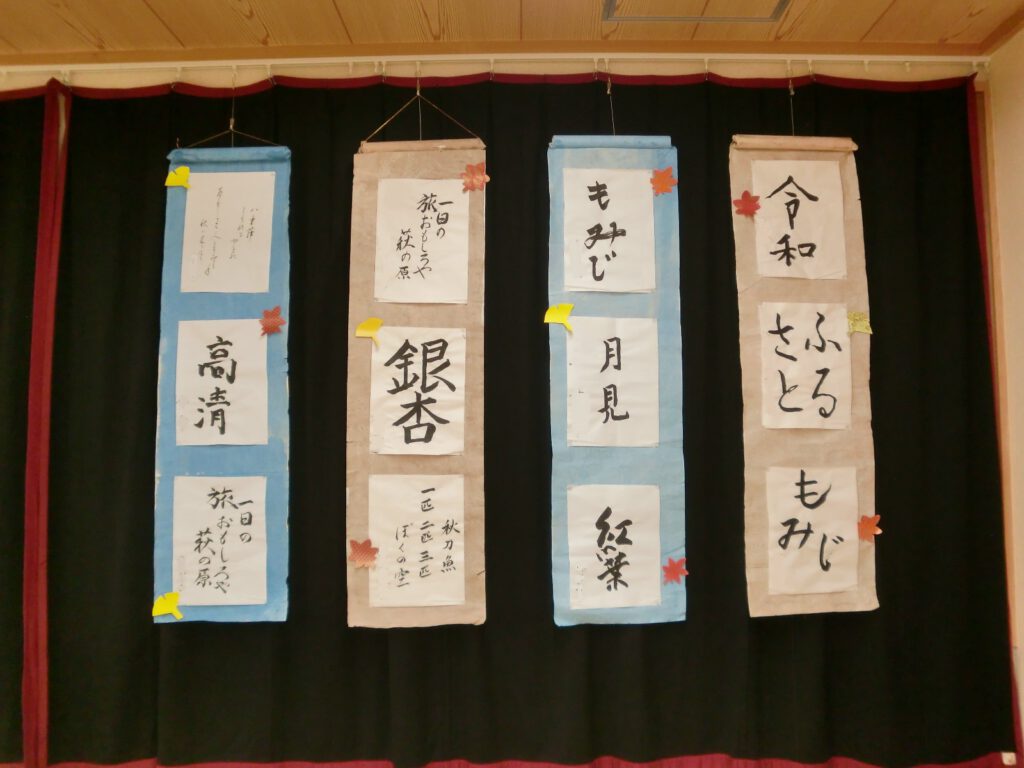 高清
一日の
旅おもしろや
萩の原
一日の
旅おもしろや
萩の原
銀杏
秋刀魚
一匹 二匹 三匹
ぼくの空
もみじ
月見
紅葉
令和
ふる
さと
もみじ